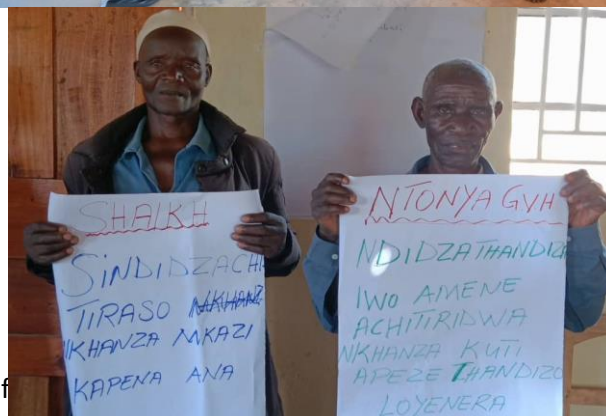 SHAIKH
SINDIDZACHI
TIRASO
NKHANZA MKAZI
KAPENA ANA
NTONYA GVH
NDIDZATHANDIZA
IWO AMENE
ACHITIRIDWA
NKHANZA KUTI
APEZE THANDIZO
LOYENERA
f